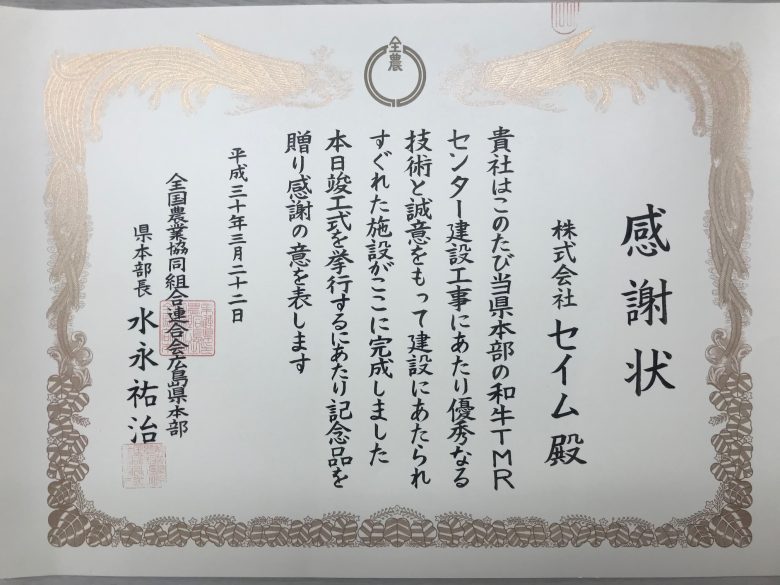 全農
感謝状
株式会社 セイム 殿
貴社はこのたび当県本部の和牛TMR
センター建設工事にあたり優秀なる
技術と誠意をもって建設にあたられ
すぐれた施設がここに完成しました
本日竣工式を挙行するにあたり記念品を
贈り感謝の意を表します
平成三十年三月二十二日
全国農業協同組合連合会広島県本部
県本部長 水永祐治